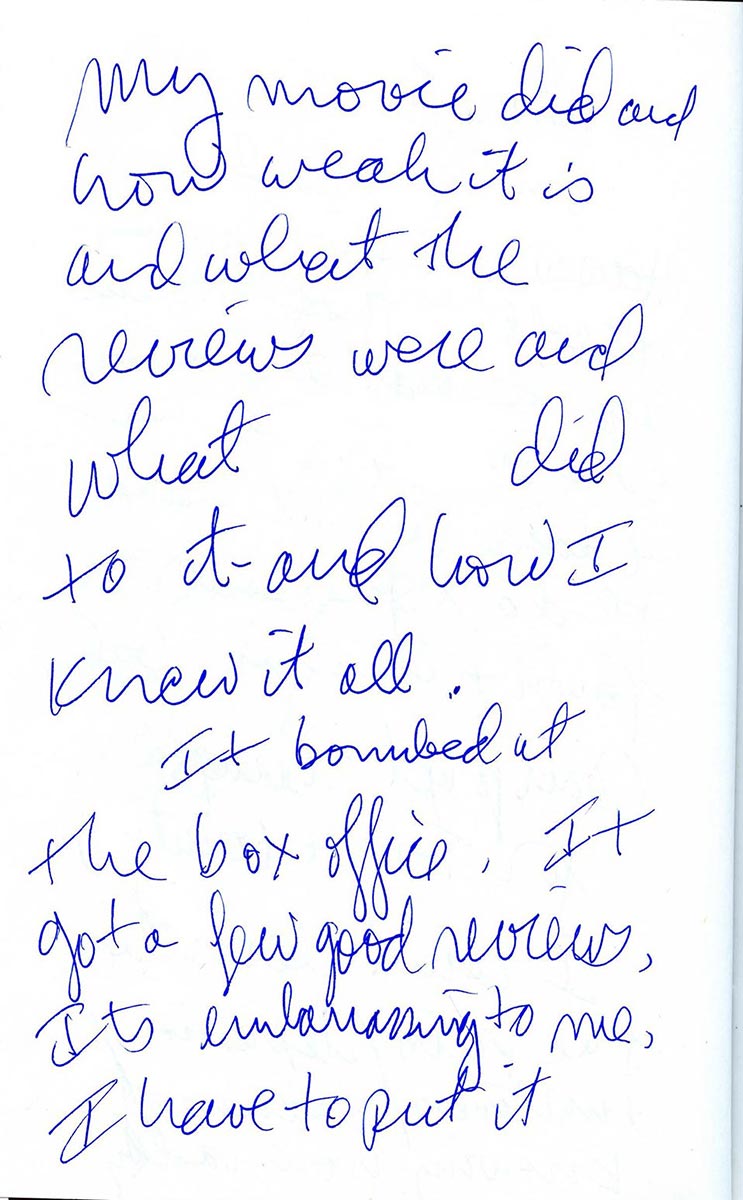 My movie did and
how weak it is
and what the
reviews were and
what did
to it-and how I
knew it all.
It bombed at
the box office. It
got a few good reviews,
Its embarrassing to me,
I have to put it